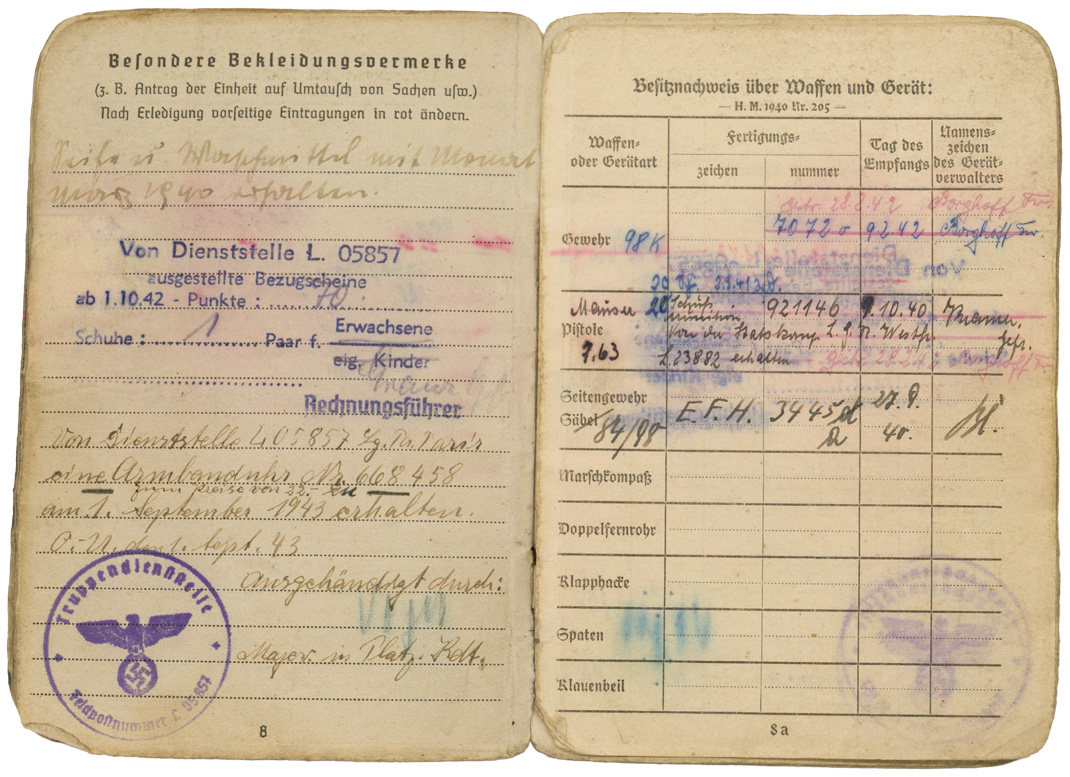 Besondere Bekleidungsvermerke
(z. B. Antrag der Einheit auf Umtausch von Sachen usw.)
Nach Erledigung vorseitige Eintragungen in rot ändern.
Seife u. Waschmittel mit Monat
März 1940 erhalten.
Von Dienststelle L 05857
ausgestellte Bezugscheine
ab 1.10.42 - Punkte : 70
Schuhe : 1 Paar f. Erwachsene
eig. Kinder
Rechnungsführer
Von Dienststelle L 05857 Lg. Pa. Paris
eine Armbanduhr Nr. 668458
zum Preise von 22.-
am 1. September 1943 erhalten.
O.-U. den 1. Sept. 43
Ausgehändigt durch:
Major. u. Platz. Kdt.
Truppendienststelle
Feldpostnummer L 05857
8
Besitznachweis über Waffen und Gerät:
— H. M. 1940 Nr. 205 —
Waffen- oder Gerätart
Fertigungs-
zeichen
nummer
Tag des Empfangs
Namens-zeichen des Gerät-verwalters
28.2.42 Borghoff
Gewehr 98K 7072 a 9 2 42 Borghoff
Mauser 20 Schuß 921146 9.10.40
Pistole munition
7.63 L 23882 erhalten 28.2.42 Borghoff
Seitengewehr
Säbel 84/98 E.F.H. 3445 d 27.9.
40.
Marschkompaß
Doppelfernrohr
Klapphacke
Spaten
Klauenbeil
8a